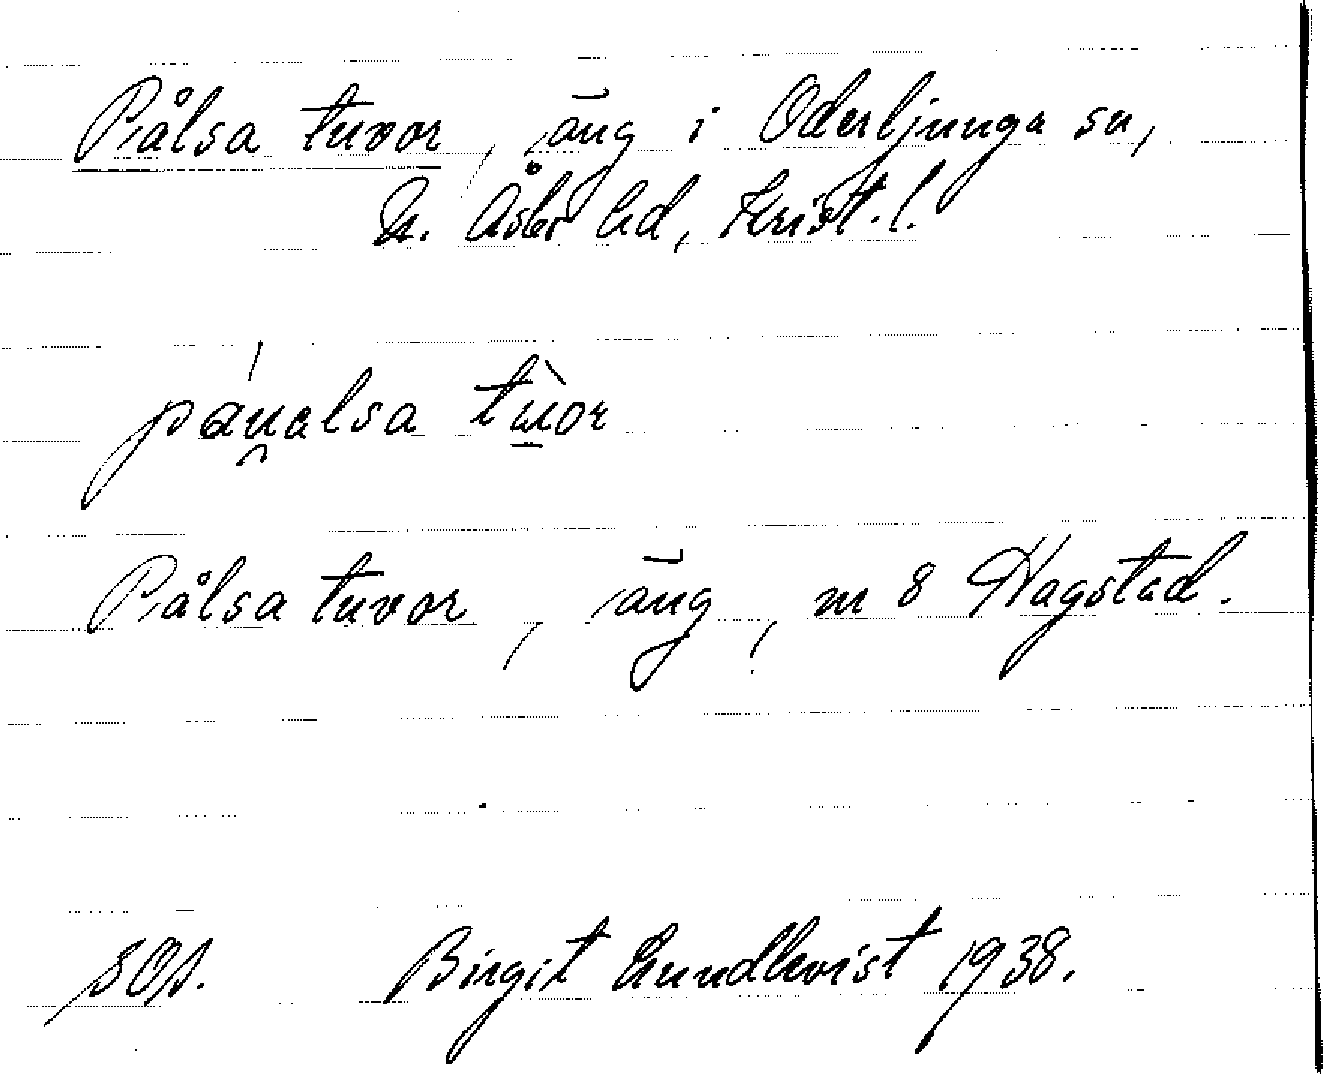 Pålsa tuvor, äng i Oderljunga sn,
N. Åsbo hd, Krist. l.
páu̯alsa tùor
Pålsa tuvor, äng, m 8 Hagstad.
sOp. Birgit Lundkvist 1938.